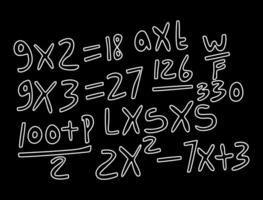 9x2=18 axt W/F
9x3=27 126/330
100+P/2 LxSxS
2x²-7x+3